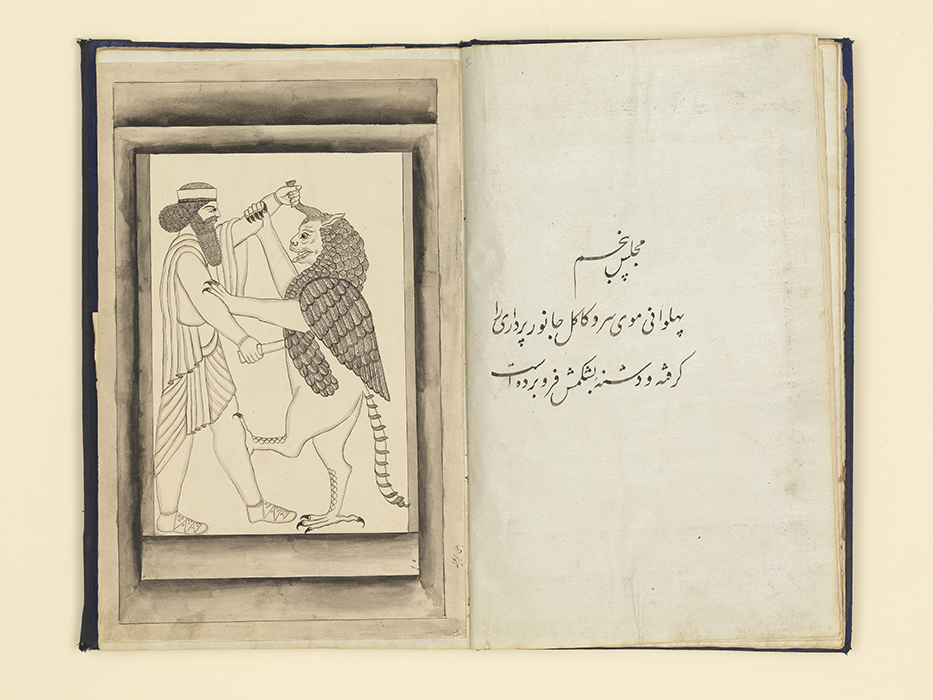 مجلس پنجم
پهلوانی موی سر و کاکل جانور پرداری را
کرفته و دشنه بشکمش فرو برده است